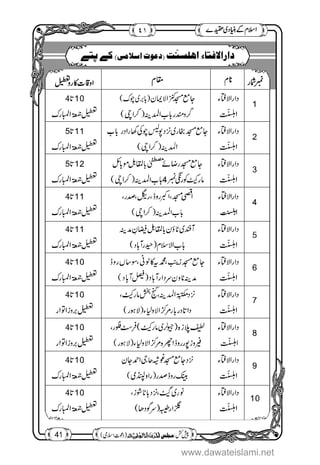 اسلام کے بنیادی عقیدے
٤١
دارالافتاء اہلسنّت (دعوت اسلامی) کے پتے
نمبر شمار نام مقام اوقات کار / تعطیل
1 دارالافتاء اہلسنّت جامع مسجد کنز الایمان (بابری چوک) گرومندر باب المدینہ (کراچی) 10 تا 4 تعطیل جمعۃ المبارک
2 دارالافتاء اہلسنّت جامع مسجد بخاری نزد پولیس چوکی کھارادر باب المدینہ (کراچی) 11 تا 5 تعطیل جمعۃ المبارک
3 دارالافتاء اہلسنّت جامع مسجد رضائے مصطفٰے بالمقابل موبائل مارکیٹ کورنگی نمبر 4 باب المدینہ (کراچی) 12 تا 5 تعطیل جمعۃ المبارک
4 دارالافتاء اہلسنّت اقصیٰ مسجد، اکبر روڈ، ریگل، صدر، باب المدینہ (کراچی) 11 تا 4 تعطیل جمعۃ المبارک
5 دارالافتاء اہلسنّت آفندی ٹاؤن بالمقابل فیضان مدینہ باب الاسلام (حیدرآباد) 11 تا 4 تعطیل جمعۃ المبارک
6 دارالافتاء اہلسنّت جامع مسجد زینب محمدیہ کالونی، سوساں روڈ مدینہ ٹاؤن سردارآباد (فیصل آباد) 10 تا 4 تعطیل جمعۃ المبارک
7 دارالافتاء اہلسنّت نزد مکتبۃ المدینہ، گنج بخش مارکیٹ، داتا دربار مرکز الاولیاء، (لاہور) 10 تا 4 تعطیل بروز اتوار
8 دارالافتاء اہلسنّت فرسٹ فلور، فیروز پور روڈ اچھرہ مرکز الاولیاء (لاہور) 10 تا 4 تعطیل بروز اتوار
9 دارالافتاء اہلسنّت نزد جامع مسجد غوثیہ حاجی احمد جان بینک روڈ صدر (راولپنڈی) 10 تا 4 تعطیل جمعۃ المبارک
10 دارالافتاء اہلسنّت نوری گیٹ، نزد باٹا شوز، گلزار طیبہ (سرگودھا) 10 تا 4 تعطیل جمعۃ المبارک
41
پیش کش: مجلس المدینۃ العلمیۃ (دعوت اسلامی)
www.dawateislami.net